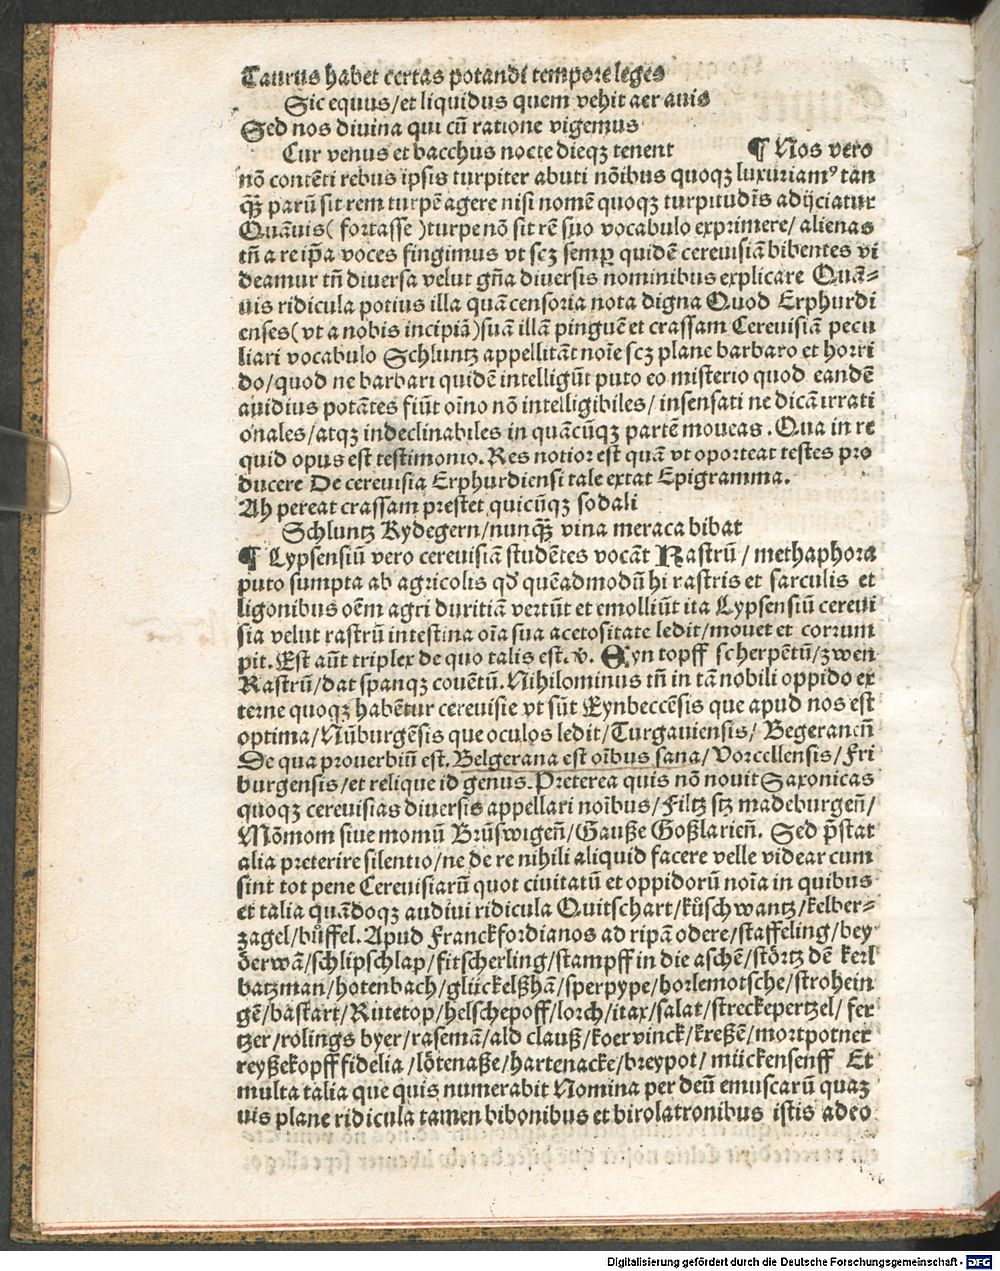 Taurus habet certas potandi tempore leges
Sic equus/et liquidus quem vehit aer auis
Sed nos diuina qui cū ratione vigemus
Cur venus et bacchus nocte dieqꝫ tenent ¶ Nos vero
nō contēti rebus ipsis turpiter abuti nōibus quoqꝫ luxuriamꝰ tan
qꝫ̄ parū sit rem turpē agere nisi nomē quoqꝫ turpitudīs adijciatur
Quāuis( fortasse )turpe nō sit rē suo vocabulo exprimere/ alienas
tn̄ a re ip̄a voces fingimus vt scꝫ semꝑ quidē cereuisiā bibentes vi
deamur tn̄ diuersa velut gn̄a diuersis nominibus explicare Quā⸗
uis ridicula potius illa quā censoria nota digna Quod Erphurdi
enses( vt a nobis incipiā)suā illā pinguē et crassam Cereuisiā pecu
liari vocabulo Schluntz appellitāt noīe scꝫ plane barbaro et horri
do/quod ne barbari quidē intelligūt puto eo misterio quod eandē
auidius potātes fiūt oīno nō intelligibiles/ insensati ne dicā irrati
onales/atqꝫ indeclinabiles in quācūqꝫ partē moueas. Qua in re
quid opus est testimonio. Res notior est quā vt oporteat testes pro
ducere De cereuisia Erphurdiensi tale extat Epigramma.
Ah pereat crassam prestet quicūqꝫ sodali
Schluntz Rydegern/nunqꝫ̄ vina meraca bibat
¶ Lypsensiū vero cereuisiā studētes vocāt Rastrū / methaphora
puto sumpta ab agricolis qď quēadmodū hi rastris et sarculis et
ligonibus oēm agri duritiā vertūt et emolliūt ita Lypsensiū cereui
sia velut rastrū intestina oīa sua acetositate ledit/mouet et corrum
pit. Est aūt triplex de quo talis est. v̄. Eyn topff scherpētū/zwen
Rastrū/dat spanqꝫ couētū. Nihilominus tn̄ in tā nobili oppido ex
terne quoqꝫ habētur cereuisie vt sūt Eynbeccēsis que apud nos est
optima/Nūburgēsis que oculos ledit/Turgauiensis/ Begerancn̄
De qua prouerbiū est. Belgerana est oībus sana/Vorcellensis/Fri
burgensis/et relique id genus. Preterea quis nō nouit Saxonicas
quoqꝫ cereuisias diuersis appellari noībus/Filtz stꝫ madeburgen̄/
Mōmom siue momū Brūswigen̄/Gauße Goßlarien̄. Sed p̄stat
alia preterire silentio/ne de re nihili aliquid facere velle videar cum
sint tot pene Cereuisiarū quot ciuitatū et oppidorū noīa in quibus
et talia quādoqꝫ audiui ridicula Quitschart/kůschwantz/kelber⸗
zagel/bůffel. Apud Franckfordianos ad ripā odere/staffeling/bey
derwā/schlipschlap/fitscherling/stampff in die aschē/störtz dē kerl
batzman/hotenbach/glückelßhā/sperpype/horlemotsche/strohein
gē/bastart/Rutetop/helschepoff/lorch/itax/salat/streckepertzel/ fer
tzer/rölings byer/rasemā/ald clauß/koervinck/kreßē/mortpotner
reyßekopff fidelia /lötenaße/hartenacke/breypot/ mückensenff Et
multa talia que quis numerabit Nomina per deū emuscarū quaꝫ
uis plane ridicula tamen bibonibus et birolatronibus istis adeo
Digitalisierung gefördert durch die Deutsche Forschungsgemeinschaft - DFG